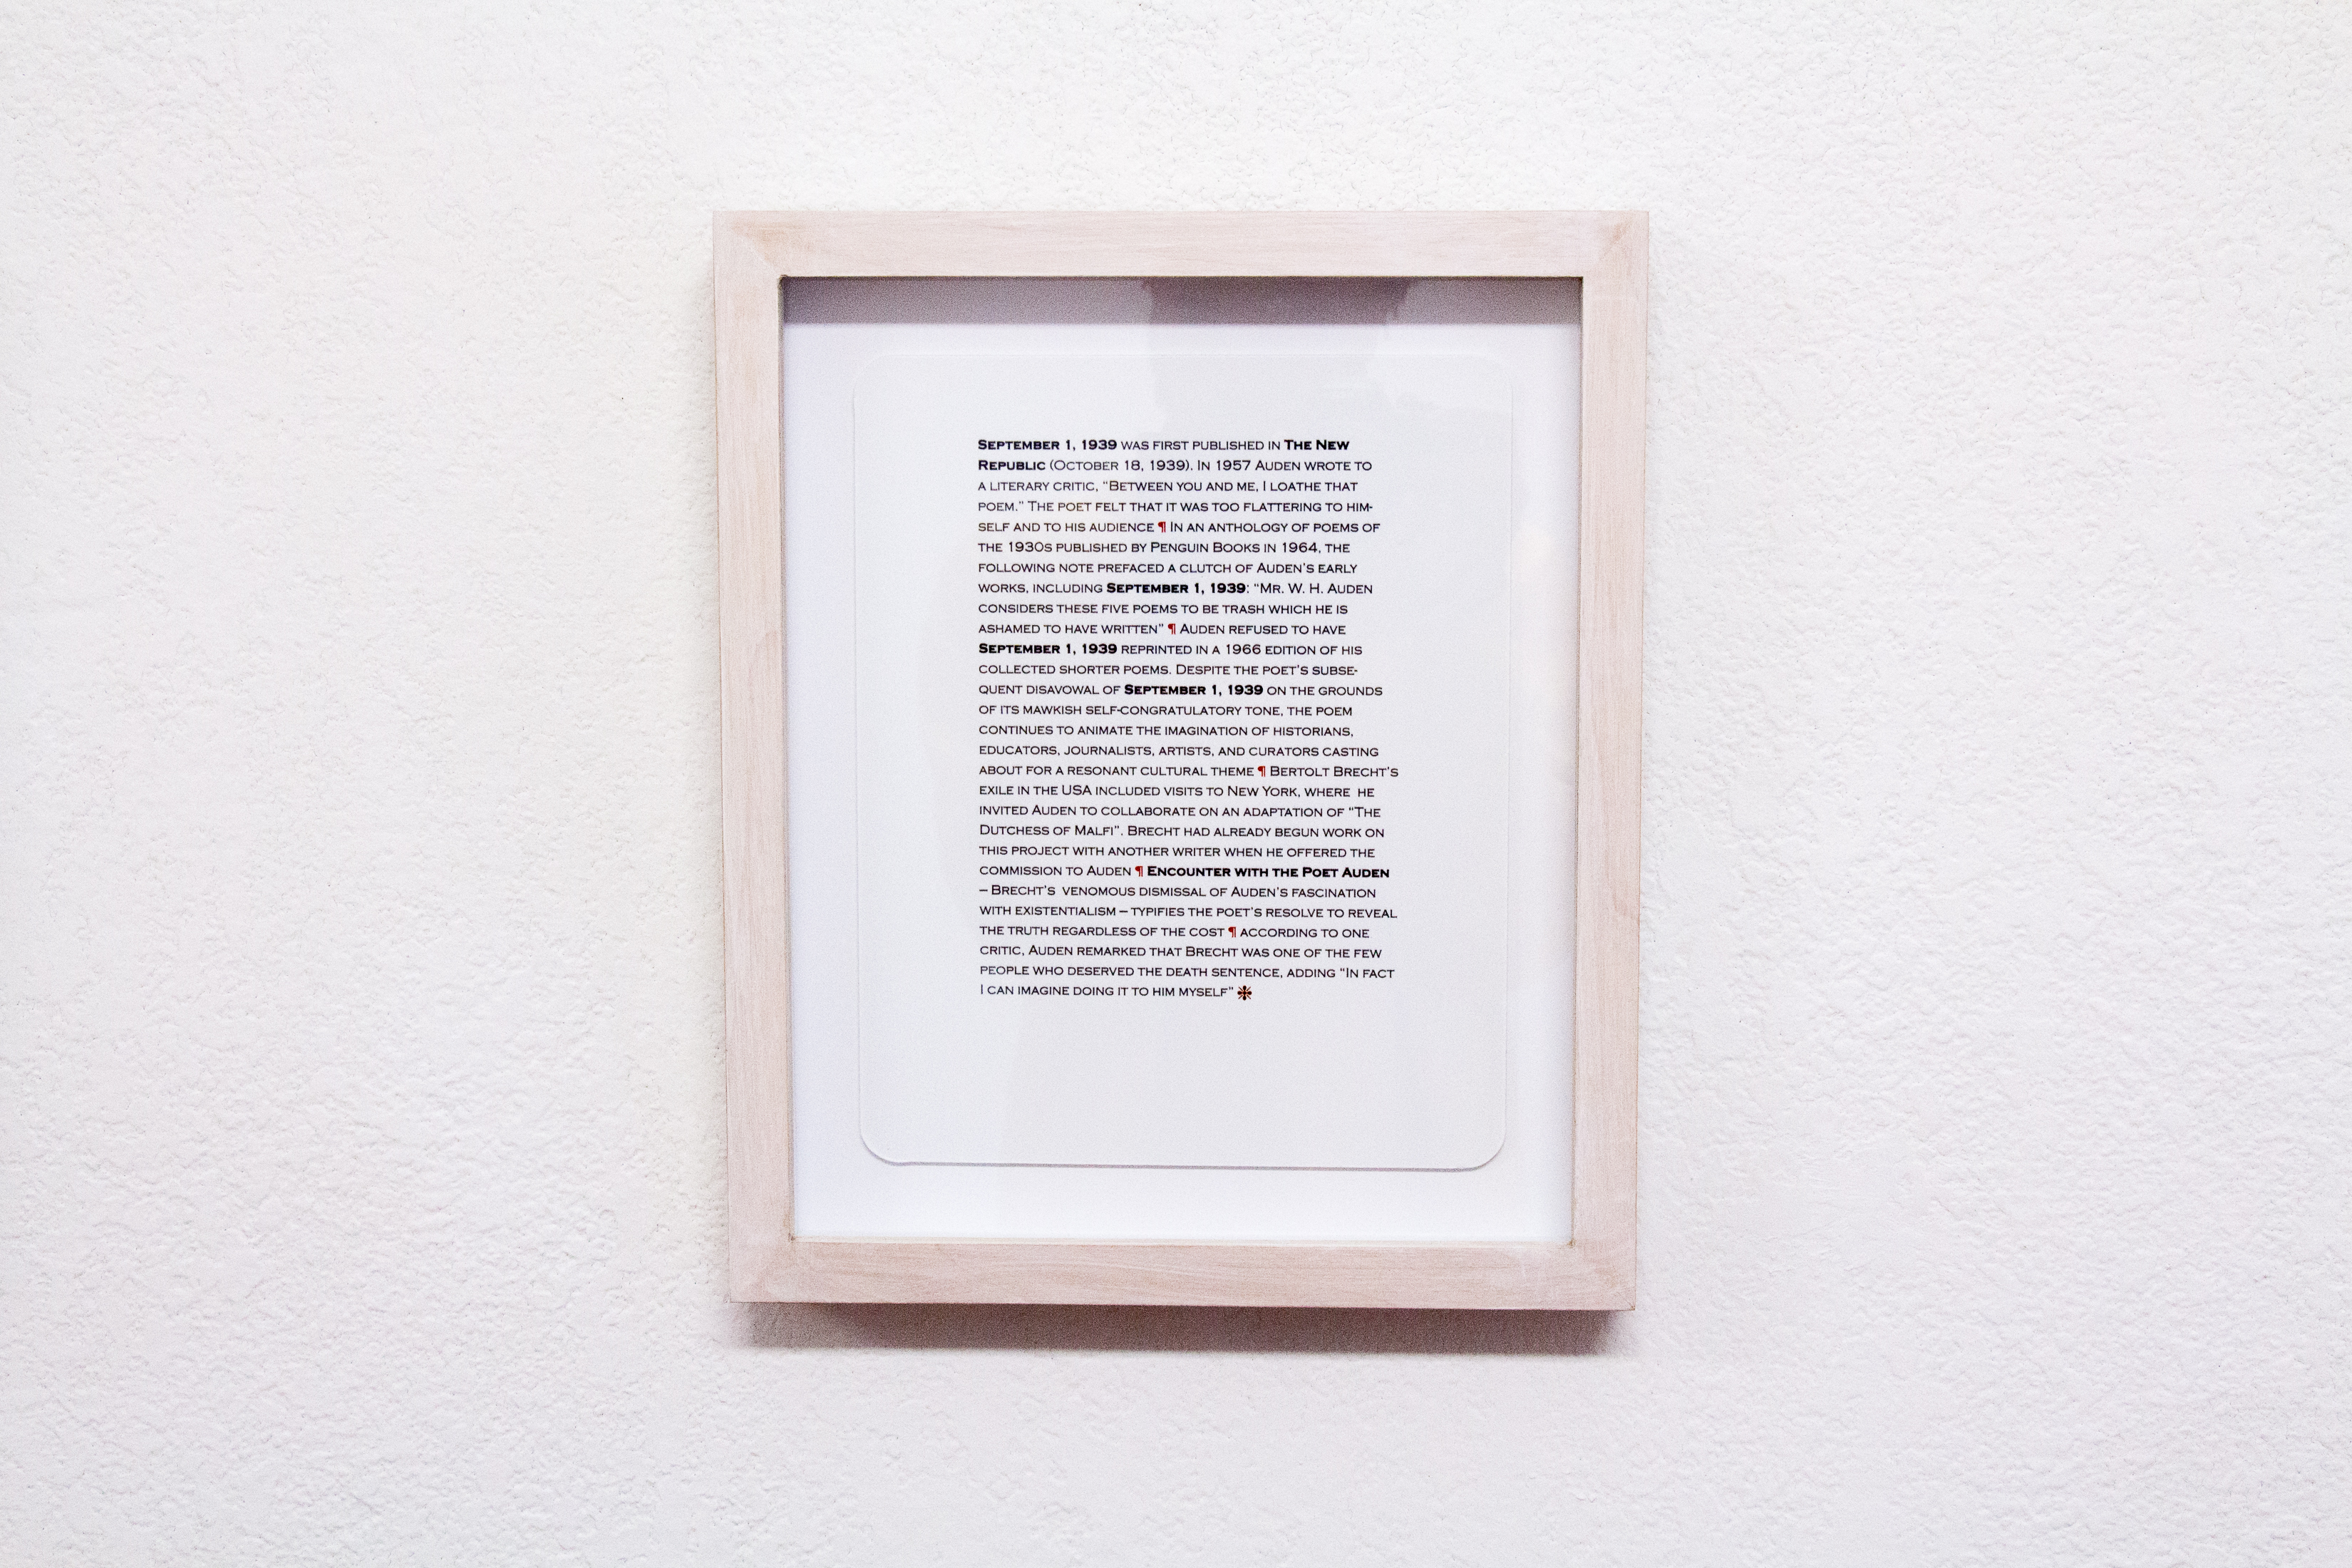 SEPTEMBER 1, 1939 WAS FIRST PUBLISHED IN THE NEW
REPUBLIC (OCTOBER 18, 1939). IN 1957 AUDEN WROTE TO
A LITERARY CRITIC, "BETWEEN YOU AND ME, I LOATHE THAT
POEM." THE POET FELT THAT IT WAS TOO FLATTERING TO HIM-
SELF AND TO HIS AUDIENCE ¶ IN AN ANTHOLOGY OF POEMS OF
THE 1930S PUBLISHED BY PENGUIN BOOKS IN 1964, THE
FOLLOWING NOTE PREFACED A CLUTCH OF AUDEN'S EARLY
WORKS, INCLUDING SEPTEMBER 1, 1939: "MR. W. H. AUDEN
CONSIDERS THESE FIVE POEMS TO BE TRASH WHICH HE IS
ASHAMED TO HAVE WRITTEN" ¶ AUDEN REFUSED TO HAVE
SEPTEMBER 1, 1939 REPRINTED IN A 1966 EDITION OF HIS
COLLECTED SHORTER POEMS. DESPITE THE POET'S SUBSE-
QUENT DISAVOWAL OF SEPTEMBER 1, 1939 ON THE GROUNDS
OF ITS MAWKISH SELF-CONGRATULATORY TONE, THE POEM
CONTINUES TO ANIMATE THE IMAGINATION OF HISTORIANS,
EDUCATORS, JOURNALISTS, ARTISTS, AND CURATORS CASTING
ABOUT FOR A RESONANT CULTURAL THEME ¶ BERTOLT BRECHT'S
EXILE IN THE USA INCLUDED VISITS TO NEW YORK, WHERE HE
INVITED AUDEN TO COLLABORATE ON AN ADAPTATION OF "THE
DUTCHESS OF MALFI". BRECHT HAD ALREADY BEGUN WORK ON
THIS PROJECT WITH ANOTHER WRITER WHEN HE OFFERED THE
COMMISSION TO AUDEN ¶ ENCOUNTER WITH THE POET AUDEN
– BRECHT'S VENOMOUS DISMISSAL OF AUDEN'S FASCINATION
WITH EXISTENTIALISM – TYPIFIES THE POET'S RESOLVE TO REVEAL
THE TRUTH REGARDLESS OF THE COST ¶ ACCORDING TO ONE
CRITIC, AUDEN REMARKED THAT BRECHT WAS ONE OF THE FEW
PEOPLE WHO DESERVED THE DEATH SENTENCE, ADDING "IN FACT
I CAN IMAGINE DOING IT TO HIM MYSELF"